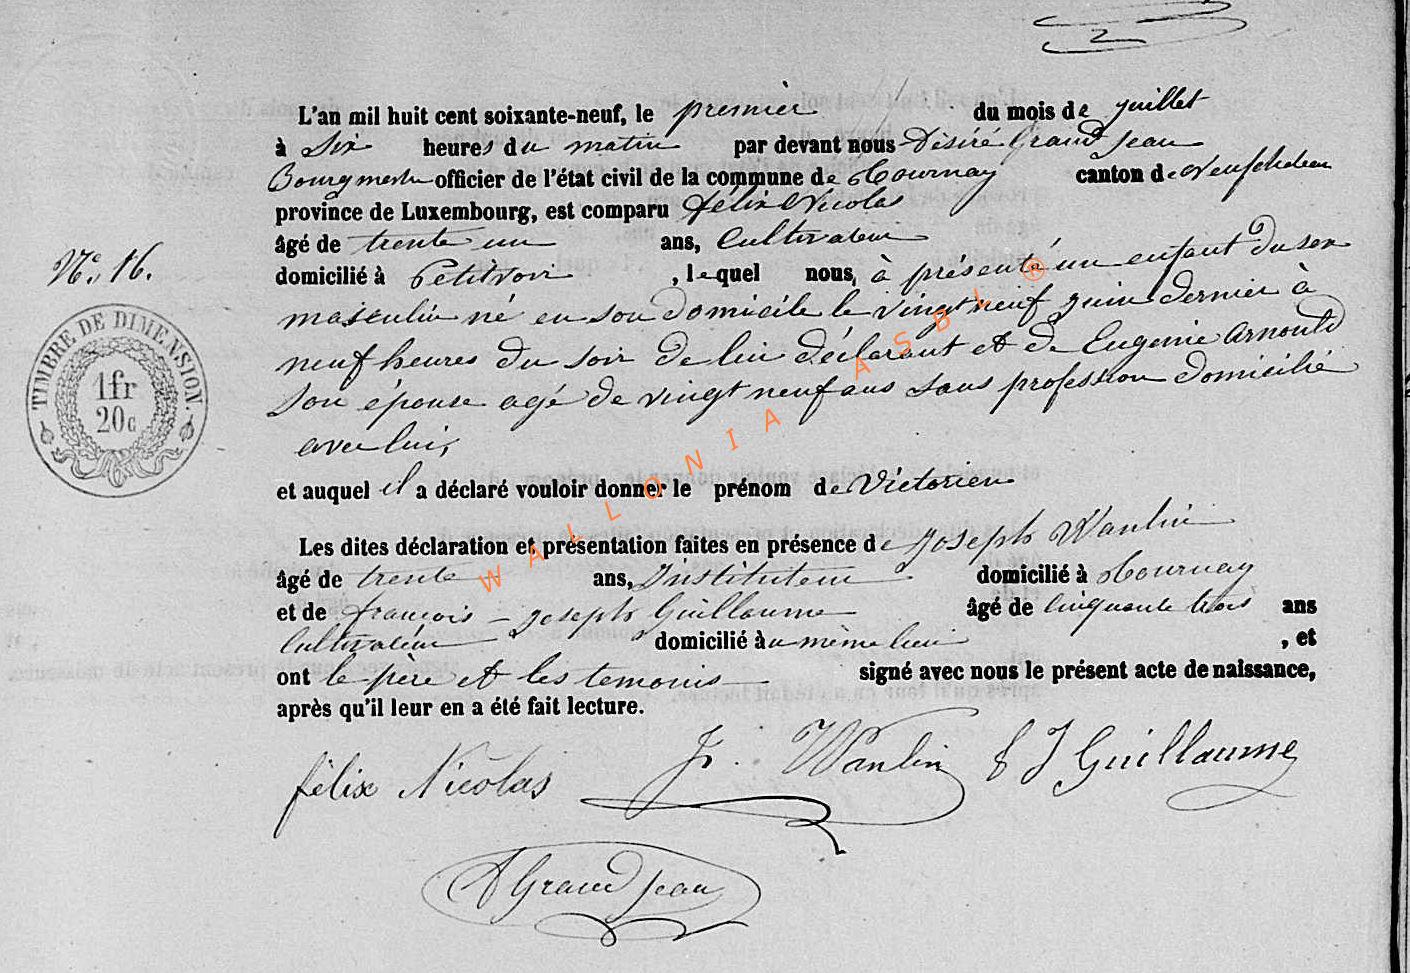 L'an mil huit cent soixante-neuf, le premier du mois de juillet
à six heures du matin par devant nous Désiré Grand Jean
Bourgmestre officier de l'état civil de la commune de Tournay canton de Neufchateau
province de Luxembourg, est comparu félix Nicolas
âgé de trente un ans, Cultivateur
domicilié à Petitvoir, lequel nous, à présenté un enfant du sex
N°. 16.
masculin né en son domicile le vingt neuf juin dernier à
neuf heures du soir de lui déclarant et de Eugenie Arnould
son épouse agé de vingt neuf ans sans profession domicilié
avec lui,
TIMBRE DE DIMENSION.
1fr
20c
et auquel il a déclaré vouloir donner le prénom de Victorien
Les dites déclaration et présentation faites en présence de Joseph Wanlin
âgé de trente ans, Instituteur domicilié à Tournay
et de françois - Joseph Guillaume âgé de Cinquante trois ans
Cultivateur domicilié au même lieu, et
ont le père et les temoins signé avec nous le présent acte de naissance,
après qu'il leur en a été fait lecture.
félix Nicolas J. Wanlin f J Guillaume
D Grand Jean
WALLONIA ASBL ®